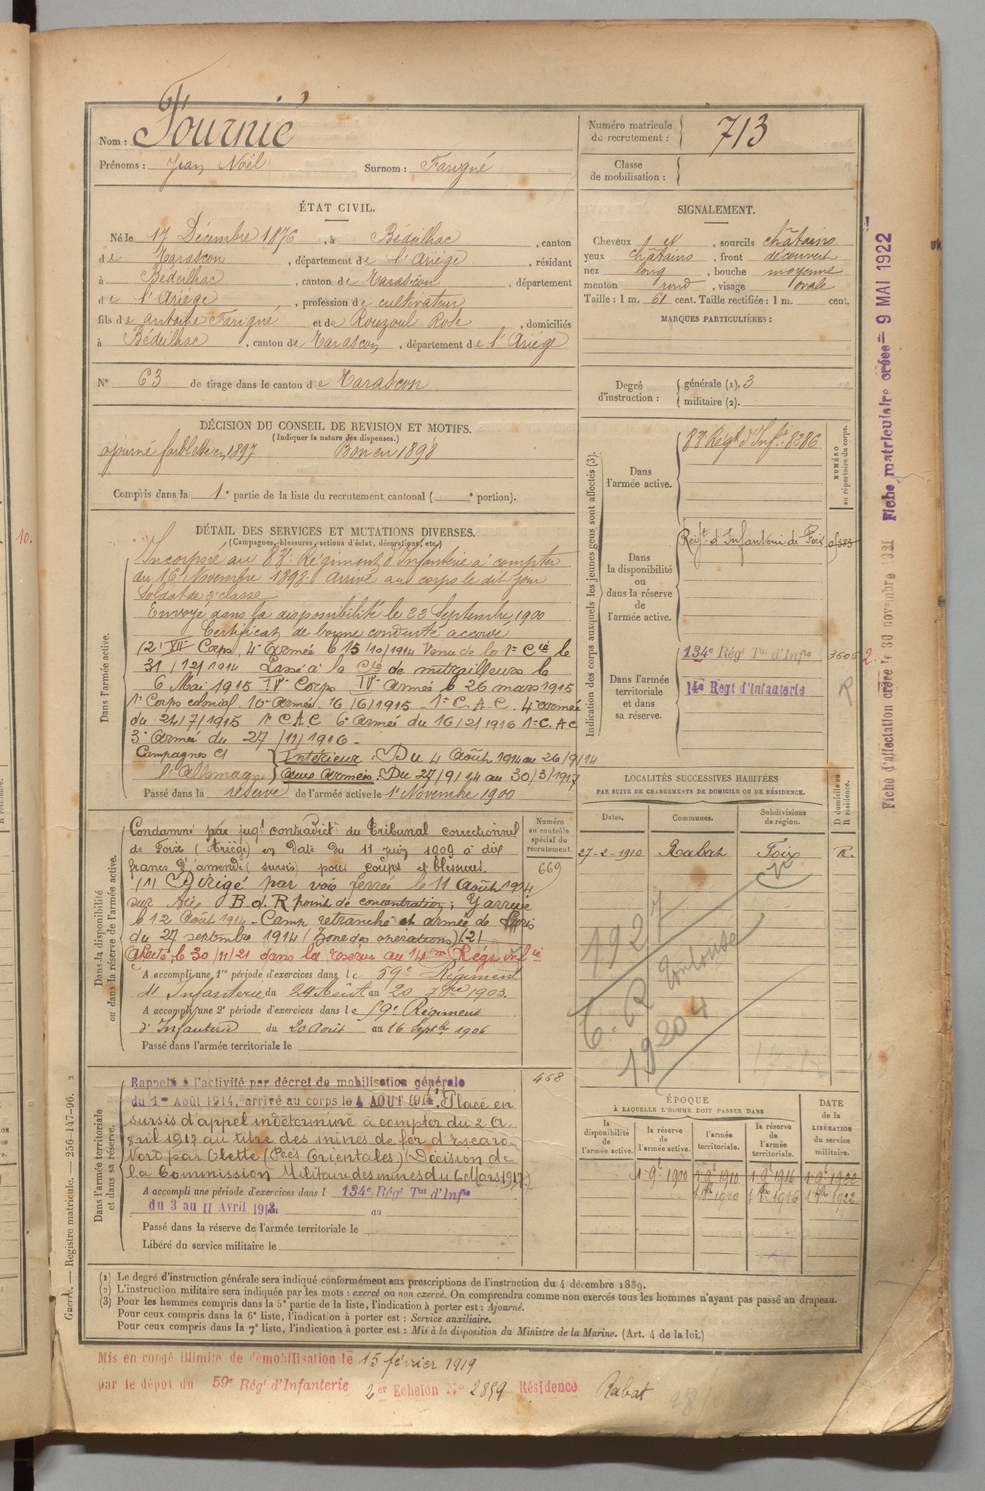 Nom : Fournié
Prénoms : Jean Noël Surnom : Farigné
Numéro matricule du recrutement : 713
Classe de mobilisation :
ÉTAT CIVIL.
Né le 17 Décembre 1876, à Bédeilhac, canton
de Tarascon, département de l'Ariège, résidant
à Bédeilhac, canton de Tarascon, département
de l'Ariège, profession de cultivateur
fils de Antoine Farigné et de Rouzoul Rose, domiciliés
à Bédeilhac, canton de Tarascon, département de l'Ariège
N° 63 de tirage dans le canton de Tarascon
SIGNALEMENT.
Cheveux et, sourcils châtains
yeux châtains, front découvert
nez long, bouche moyenne
menton rond, visage ovale
Taille : 1 m. 61 cent. Taille rectifiée : 1 m. cent.
MARQUES PARTICULIÈRES :
Degré d'instruction : générale (1). 3
militaire (2).
DÉCISION DU CONSEIL DE REVISION ET MOTIFS.
(Indiquer la nature des dispenses.)
ajourné faiblesse en 1897 Bon en 1898
Compris dans la 1e partie de la liste du recrutement cantonal ( e portion).
DÉTAIL DES SERVICES ET MUTATIONS DIVERSES.
(Campagnes, blessures, actions d'éclat, décorations, etc.)
Dans l'armée active.
Incorporé au 83e Régiment d'Infanterie à compter
du 16 Novembre 1898. Arrivé au corps le dit jour
Soldat de 2e classe
Envoyé dans la disponibilité le 23 Septembre 1900
Certificat de bonne conduite accordé
(2) VIIe Corps, 4e armée le 15/10/1914 Venu de la 1e Cie le
31/12/1914 Passé à la Cie de mitrailleurs le
6 Mai 1915 IVe Corps IVe Armée le 26 mars 1915
1e Corps colonial 10e Armée 16/6/1915 1e C.A.C. 4e armée
du 24/7/1915 1e C A C 6e Armée du 16/2/1916 1e C. A C
3e Armée du 27/11/1916 -
Campagnes Ct l'Allemagne
Intérieur : Du 4 Août 1914 au 26/9/14
aux Armées : Du 27/9/14 au 30/3/1917
Passé dans la réserve de l'armée active le 1er Novembre 1900
Indication des corps auxquels les jeunes gens sont affectés (3).
Dans l'armée active.
83e Régt d'Infie 8286
NUMÉRO au répertoire du corps.
Dans la disponibilité ou dans la réserve de l'armée active.
Régt d'Infanterie de Foix
Dans l'armée territoriale et dans sa réserve.
134e Régt Tal d'Infie
14e Regt d'Infanterie
R
Dans la disponibilité ou dans la réserve de l'armée active.
Condamné par jugt contradict du Tribunal correctionnel
de Foix (Ariège) en date du 11 juin 1909 à dix
francs d'amende (sursis) pour coups et blessures.
(1) Dirigé par voie ferrée le 11 Août 1914
B. d. R point de concentration ; Y arrivé
le 12 Août 1914 - Camp retranché et armée de Paris
du 27 septembre 1914 (Zone des opérations) (2)
Affecté le 30/11/21 dans la réserve au 14me Régt Infie
A accompli une 1re période d'exercices dans le 59e Régiment
d'Infanterie du 24 Août au 20 7bre 1903.
A accompli une 2e période d'exercices dans le 59e Régiment
d'Infanterie du 20 Août au 16 Septbre 1906
Passé dans l'armée territoriale le
Numéro au contrôle spécial du recrutement.
669
468
LOCALITÉS SUCCESSIVES HABITÉES
PAR SUITE DE CHANGEMENTS DE DOMICILE OU DE RÉSIDENCE.
Dates. Communes. Subdivisions de région. D domicile ou R résidence.
27-2-1910 Rabat Foix R.
1927
C. R Toulouse
Dans l'armée territoriale et dans sa réserve.
Rappelé à l'activité par décret de mobilisation générale
du 1er Août 1914, arrivé au corps le 4 AOUT 1914. Placé en
sursis d'appel indéterminé à compter du 2 A-
vril 1917 au titre des mines de fer d'Escaro-
Nord par Olette (Pées Orientales) (Décision de
la Commission Militaire des mines du 6 Mars 1917)
A accompli une période d'exercices dans le 134e Régt Tal d'Infie
du 3 au 11 Avril au
Passé dans la réserve de l'armée territoriale le
Libéré du service militaire le
ÉPOQUE
À LAQUELLE L'HOMME DOIT PASSER DANS
la disponibilité de l'armée active. la réserve de l'armée active. l'armée territoriale. la réserve de l'armée territoriale. DATE de la LIBÉRATION du service militaire.
(1) Le degré d'instruction générale sera indiqué conformément aux prescriptions de l'instruction du 4 décembre 1889.
(2) L'instruction militaire sera indiquée par les mots : exercé ou non exercé. On comprendra comme non exercés tous les hommes n'ayant pas passé au drapeau.
(3) Pour les hommes compris dans la 5e partie de la liste, l'indication à porter est : Ajourné.
Pour ceux compris dans la 6e liste, l'indication à porter est : Service auxiliaire.
Pour ceux compris dans la 7e liste, l'indication à porter est : Mis à la disposition du Ministre de la Marine. (Art. 4 de la loi.)
Mis en congé illimité de démobilisation le 15 février 1919
par le dépôt du 59e Régt d'Infanterie 2er Echelon N° 2859 Résidence Rabat
Registre matricule. — 236-147-96. 2
Fiche matriculaire créée — 9 MAI 1922
Fiche d'affectation créée le 30 novembre 1921
10.